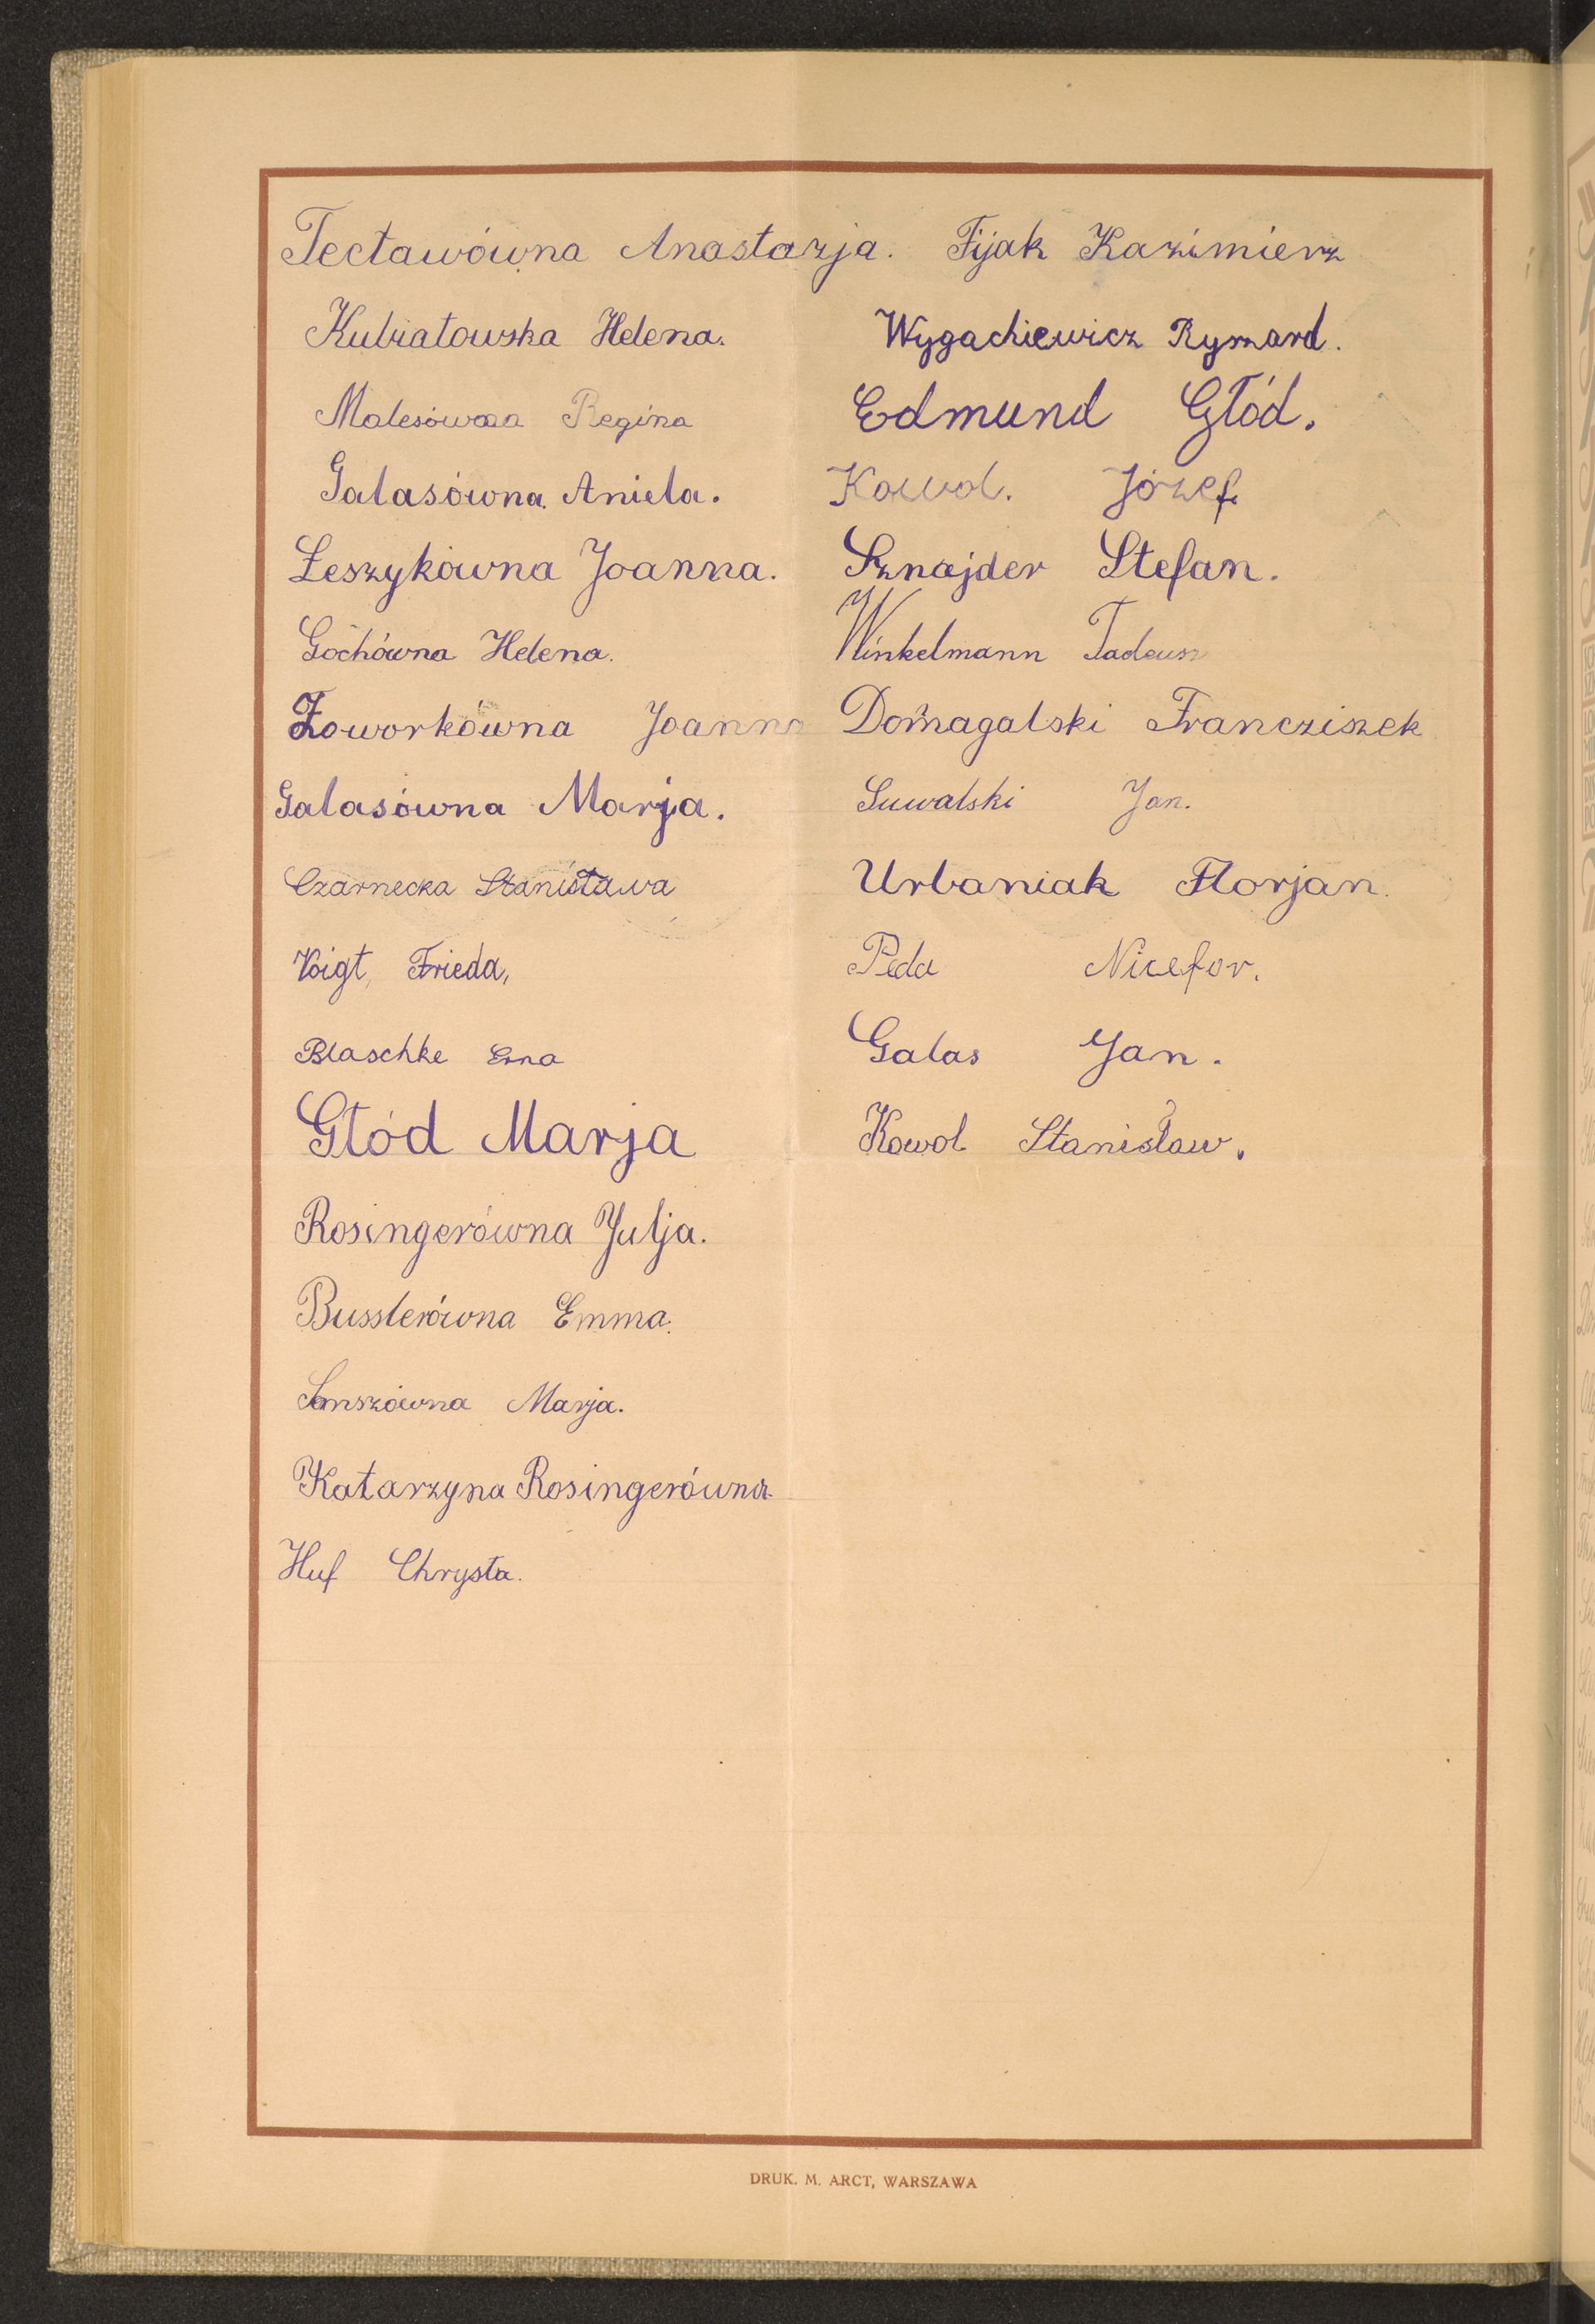 Tectawówna Anastazja.
Kubiatowska Helena.
Malesówna Regina
Galasówna Aniela.
Leszykówna Joanna.
Gochówna Helena.
Joanna
Galasówna Marja.
Czarnecka Stanisława
Voigt, Frieda,
Blaschke Erna
Głód Marja
Rosingerówna Julja.
Busslerówna Emma.
Marja.
Katarzyna Rosingerówna
Huf Chrysta.
Fijak Kazimierz
Wygachiewicz Ryszard.
Edmund Głód.
Kowol. Józef.
Sznajder Stefan.
Winkelmann Tadeusz
Domagalski Francziszek
Suwalski Jan.
Urbaniak Florjan.
Peda Nicefor.
Galas Jan.
Kowol Stanisław.
DRUK. M. ARCT, WARSZAWA